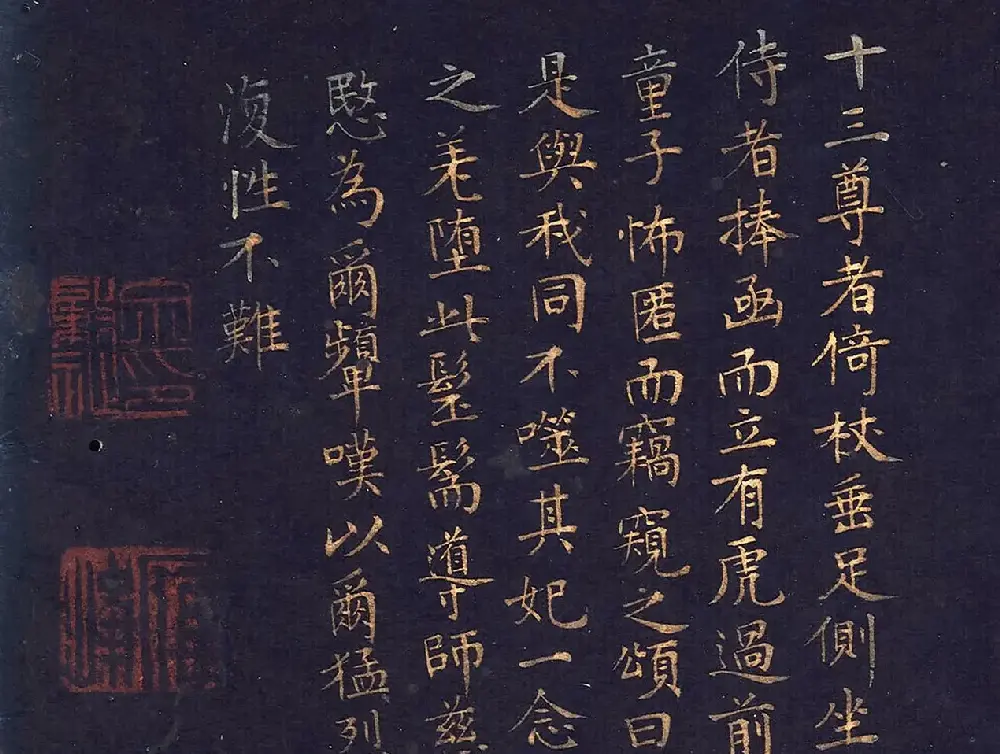 十三尊者倚杖垂足側坐
侍者捧凾而立有虎過前
童子怖匿而竊窺之頌曰
是與我同不噬其妃一念
之差堕此髬髵導師慈
愍為爾顰嘆以爾猛列
復性不難